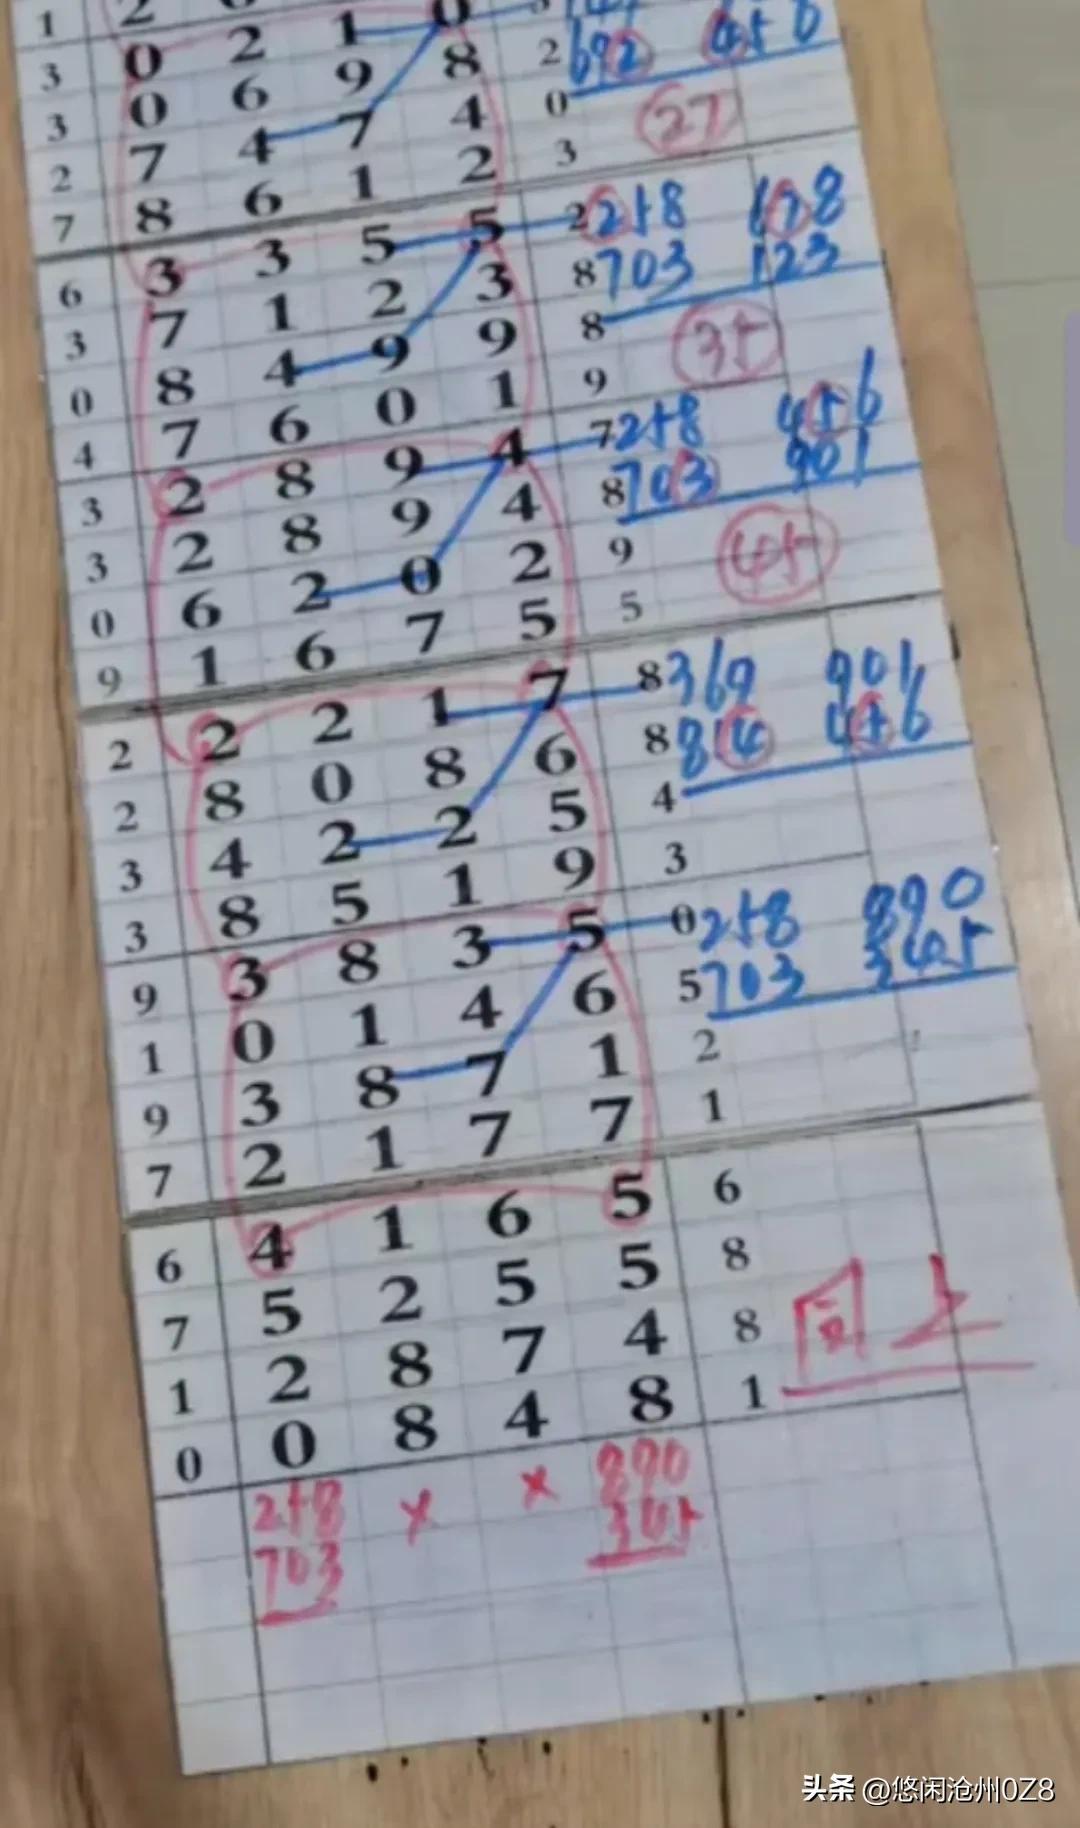 1 2 1 0
3 0 2 1 8 2 692 456
3 0 6 9 4 0 27
2 7 4 7 2 3
7 8 6 1 5 2 258 678
6 3 3 5 3 8 703 123
3 7 1 2 9 8 35
0 8 4 9 1 9
4 7 6 0 4 7 258 456
3 2 8 9 4 8 703 901
3 2 8 9 2 9 45
0 6 2 0 5 5
9 1 6 7
2 2 2 1 7 8 369 901
2 8 0 8 6 8 814 456
3 4 2 2 5 4
3 8 5 1 9 3
9 3 8 3 5 0 258 890
1 0 1 4 6 5 703 345
9 3 8 7 1 2
7 2 1 7 7 1
6 4 1 6 5 6
7 5 2 5 5 8
1 2 8 7 4 8 同上
0 0 8 4 8 1
258 × × 890
703 345
头条 @悠闲沧州0Z8